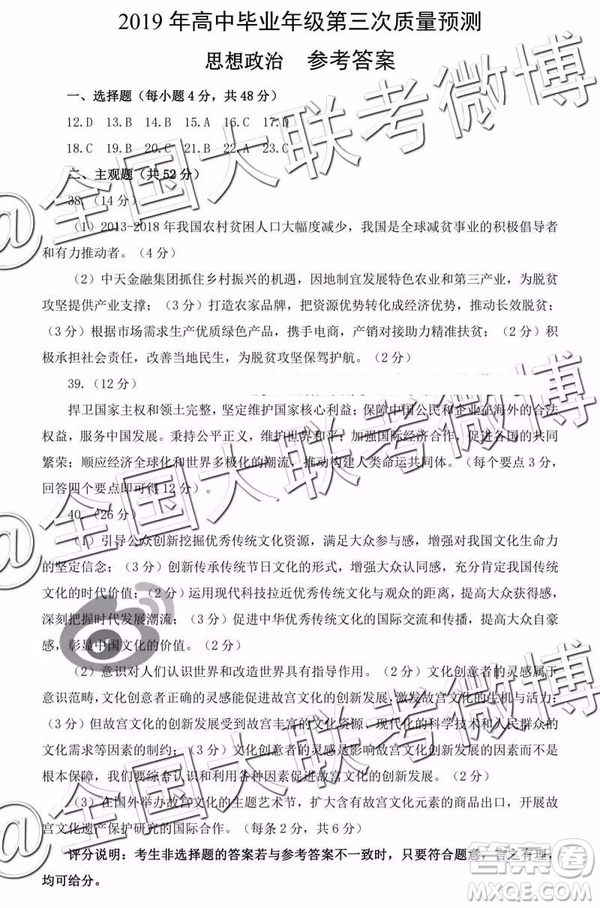 2019 年高中毕业年级第三次质量预测
思想政治 参考答案
一、选择题（每小题 4 分，共 48 分）
12.D 13.B 14.B 15.A 16.C 17.D
18.C 19.B 20.C 21.B 22.A 23.C
二、主观题（共 52 分）
38.（14 分）
（1）2013-2018 年我国农村贫困人口大幅度减少，我国是全球减贫事业的积极倡导者
和有力推动者。（4 分）
（2）中天金融集团抓住乡村振兴的机遇，因地制宜发展特色农业和第三产业，为脱贫
攻坚提供产业支撑；（3 分）打造农家品牌，把资源优势转化成经济优势，推动长效脱贫；
（3 分）根据市场需求生产优质绿色产品，携手电商，产销对接助力精准扶贫；（2 分）积
极承担社会责任，改善当地民生，为脱贫攻坚保驾护航。（2 分）
39.（12 分）
捍卫国家主权和领土完整，坚定维护国家核心利益；保障中国公民和企业在海外的合法
权益，服务中国发展。秉持公平正义，维护世界和平；加强国际经济合作，促进各国的共同
繁荣；顺应经济全球化和世界多极化的潮流，推动构建人类命运共同体。（每个要点 3 分，
回答四个要点即可得 12 分）。
40.（26 分）
（1）引导公众创新挖掘优秀传统文化资源，满足大众感，增强对我国文化生命力
的坚定信念；（3 分）创新传承传统节日文化的形式，增强大众认同感，充分肯定我国传统
文化的时代价值；（2 分）运用现代科技拉近优秀传统文化与大众的距离，提高大众获得感，
深刻把握时代发展潮流；（3 分）促进中华优秀传统文化的国际交流和传播，提高大众自豪
感，彰显中国文化的价值。（2 分）
（2）意识对人们认识世界和改造世界具有指导作用。（2 分）文化创意者的灵感属于
意识范畴，文化创意者正确的灵感能促进故宫文化的创新发展，激发故宫文化的生机与活力；
（3 分）但故宫文化的创新发展受到故宫丰富的文化资源、现代化的科学技术和人民群众的
文化需求等因素的制约；（2 分）文化创意者的灵感是影响故宫文化创新发展的因素之一。
（1 分）因此，我们要综合意识和利用各种因素促进故宫文化的创新发展。（2 分）
（3）在国外举办故宫文化的主题艺术节，扩大含有故宫文化元素的商品出口，开展故
宫文化遗产保护研究的国际合作。（每条 2 分，共 6 分）
评分说明：考生非选择题的答案若与参考答案不一致时，只要符合题意，言之有理，
均可给分。
@全国大联考微博
@全国大联考微博
答案圈
MXQE.COM